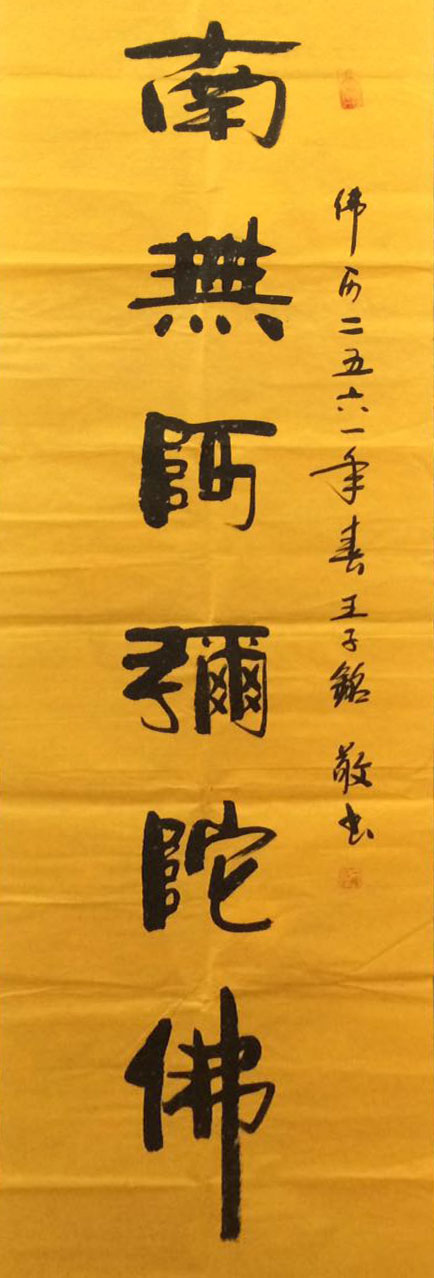 南無阿彌陀佛
佛历二五六一年春王子銘敬书